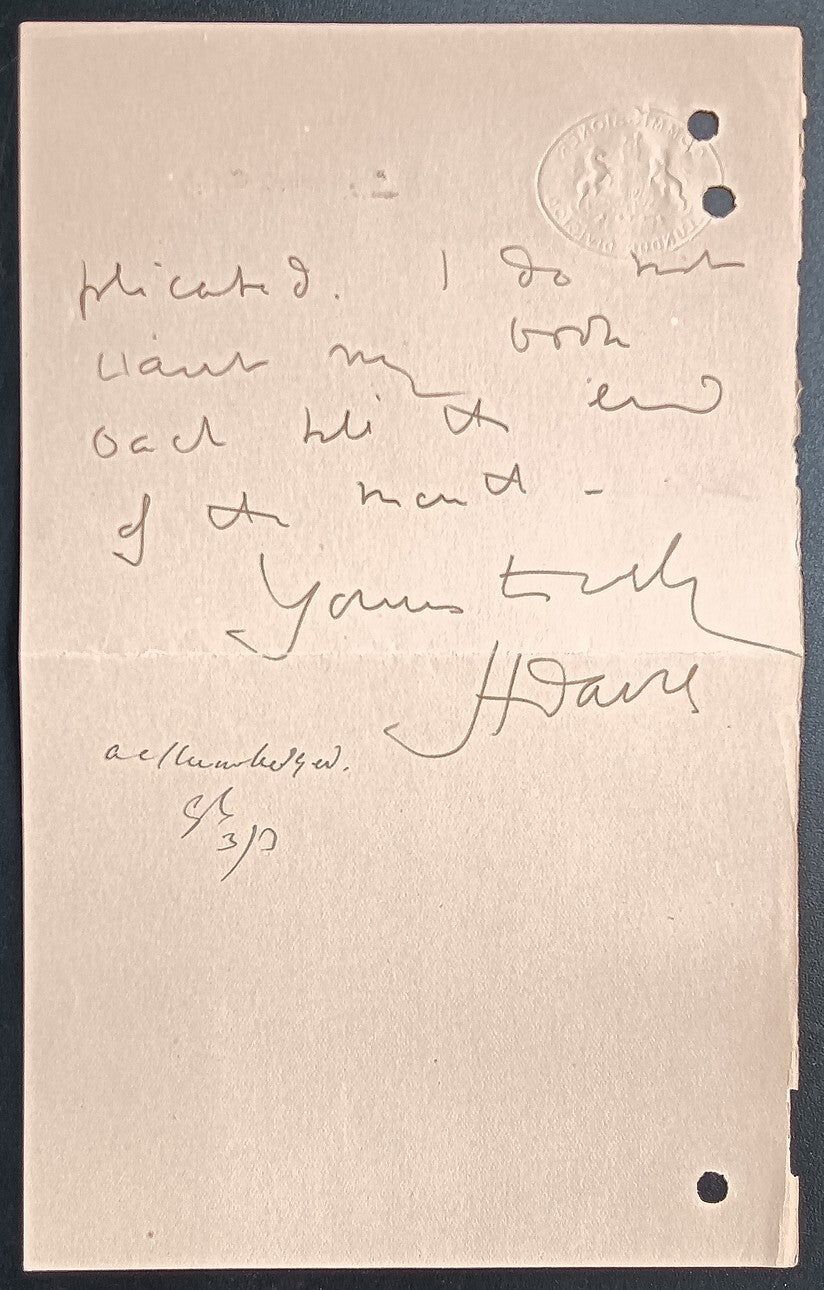 plicated. I do not
want my book
back till the end
of the month -
Yours truly
H Davis
acknowledged.
3/7